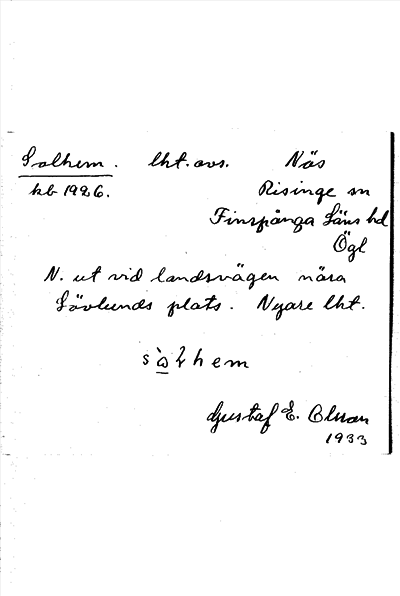 Solhem. lht. avs. Näs
kb 1926. Risinge sn
Finspånga Läns hd
Ögl
N. ut vid landsvägen nära
Lövlunds plats. Nyare lht.
Gustaf E. Olsson
1933